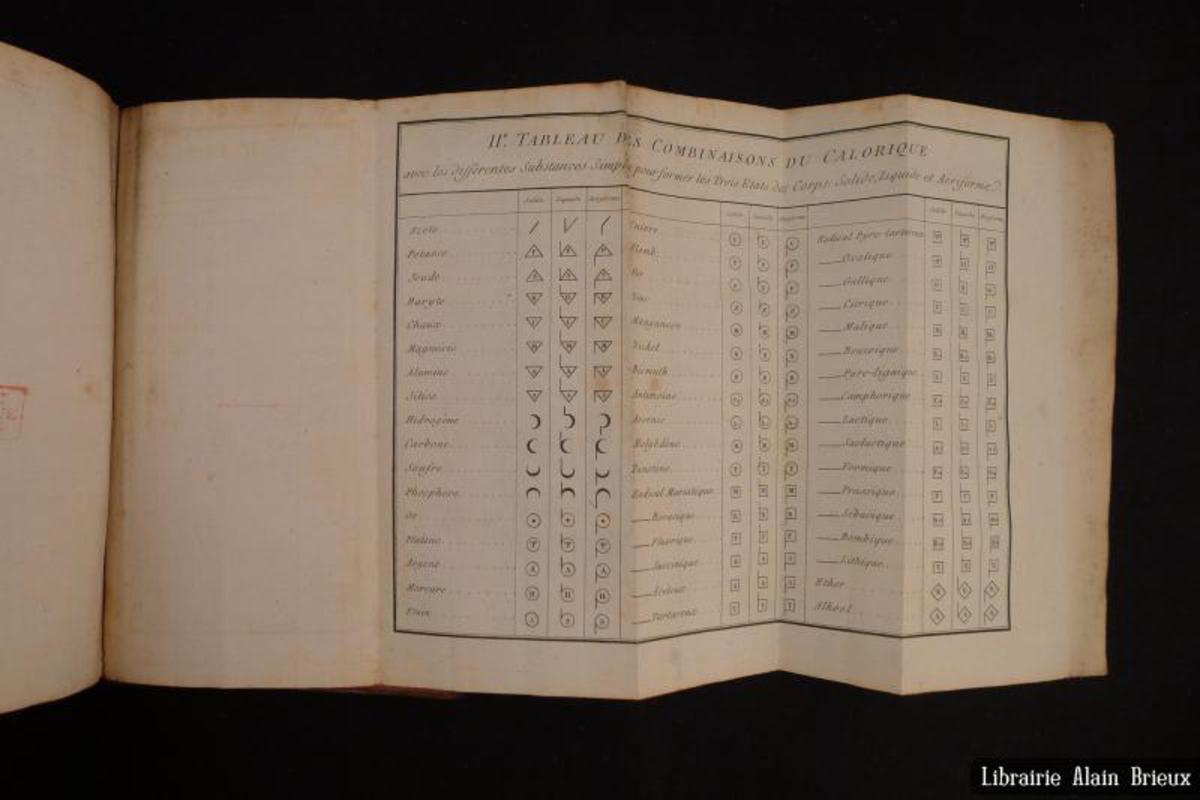 IIe. TABLEAU DES COMBINAISONS DU CALORIQUE
avec les différentes Substances Simples pour former les Trois Etats des Corps: Solide, Liquide et Aeriforme.
Solide Liquide Aeriforme
Azote
Potasse
Soude
Baryte
Chaux
Magnesie
Alumine
Silice
Hidrogène
Carbone
Soufre
Phosphore
Or
Platine
Argent
Mercure
Etain
Cuivre
Plomb
Fer
Zinc
Manganèse
Nickel
Bismuth
Antimoine
Arsenic
Molybdène
Tunstène
Radical Muriatique
Boracique
Fluorique
Succinique
Aceteux
Tartareux
Radical Pyro-tartareux
Oxalique
Gallique
Citrique
Malique
Benzoique
Pyro-lignique
Camphorique
Lactique
Saclactique
Formique
Prussique
Sebacique
Bombique
Lithique
Ether
Alkool
Librairie Alain Brieux